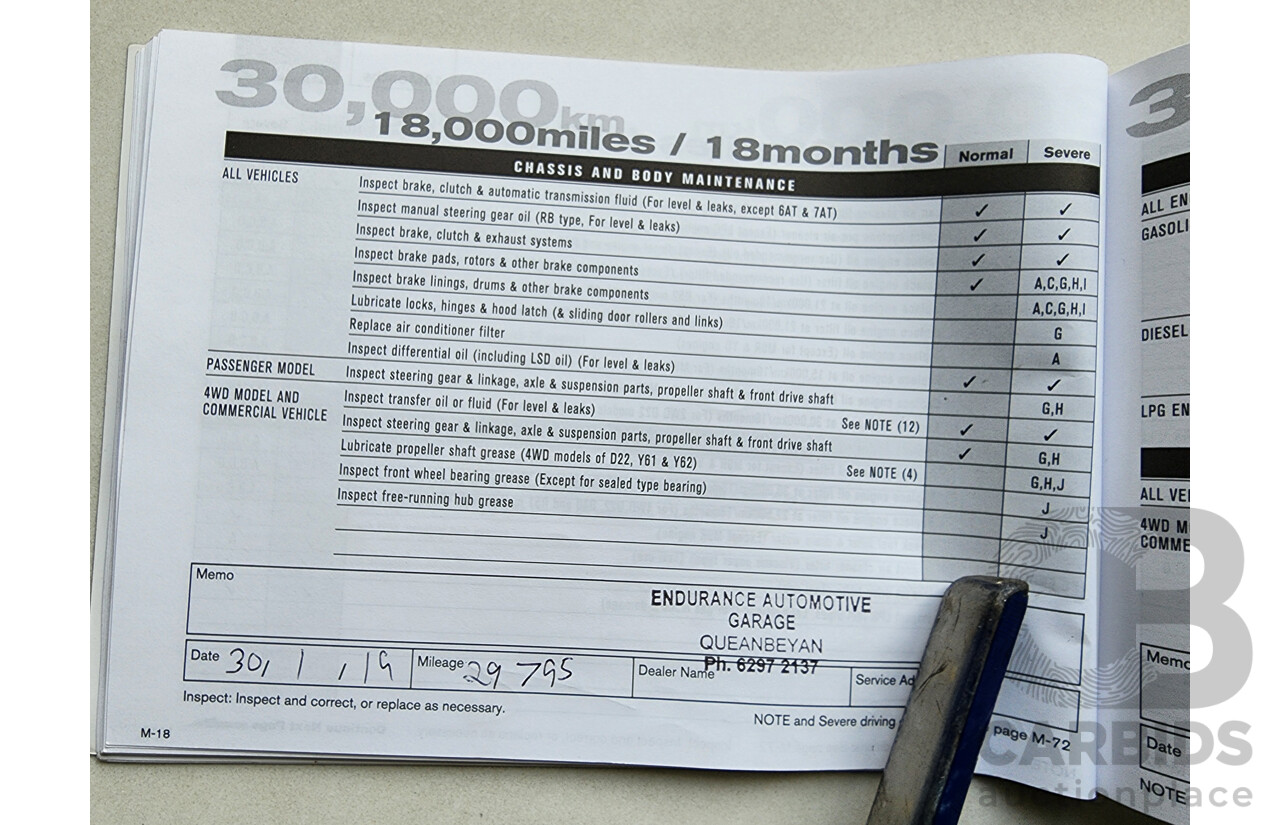 30,000km
18,000miles / 18months
Normal
Severe
CHASSIS AND BODY MAINTENANCE
ALL VEHICLES
Inspect brake, clutch & automatic transmission fluid (For level & leaks, except 6AT & 7AT) ✓ ✓
Inspect manual steering gear oil (RB type, For level & leaks) ✓ ✓
Inspect brake, clutch & exhaust systems ✓ ✓
Inspect brake pads, rotors & other brake components ✓ A,C,G,H,I
Inspect brake linings, drums & other brake components A,C,G,H,I
Lubricate locks, hinges & hood latch (& sliding door rollers and links) G
Replace air conditioner filter A
Inspect differential oil (including LSD oil) (For level & leaks) ✓ ✓
PASSENGER MODEL
Inspect steering gear & linkage, axle & suspension parts, propeller shaft & front drive shaft G,H
4WD MODEL AND
COMMERCIAL VEHICLE
Inspect transfer oil or fluid (For level & leaks) See NOTE (12) ✓ ✓
Inspect steering gear & linkage, axle & suspension parts, propeller shaft & front drive shaft ✓ G,H
Lubricate propeller shaft grease (4WD models of D22, Y61 & Y62) See NOTE (4) G,H,J
Inspect front wheel bearing grease (Except for sealed type bearing) J
Inspect free-running hub grease J
Memo
ENDURANCE AUTOMOTIVE
GARAGE
QUEANBEYAN
Ph. 6297 2137
Date 30, 1, 19
Mileage 29 795
Dealer Name
Service Ad
Inspect: Inspect and correct, or replace as necessary.
NOTE and Severe driving
page M-72
M-18
3
ALL EN
GASOLI
DIESEL
LPG EN
ALL VE
4WD M
COMME
Memo
Date
NOTE
CB
CARBIDS
auctionplace